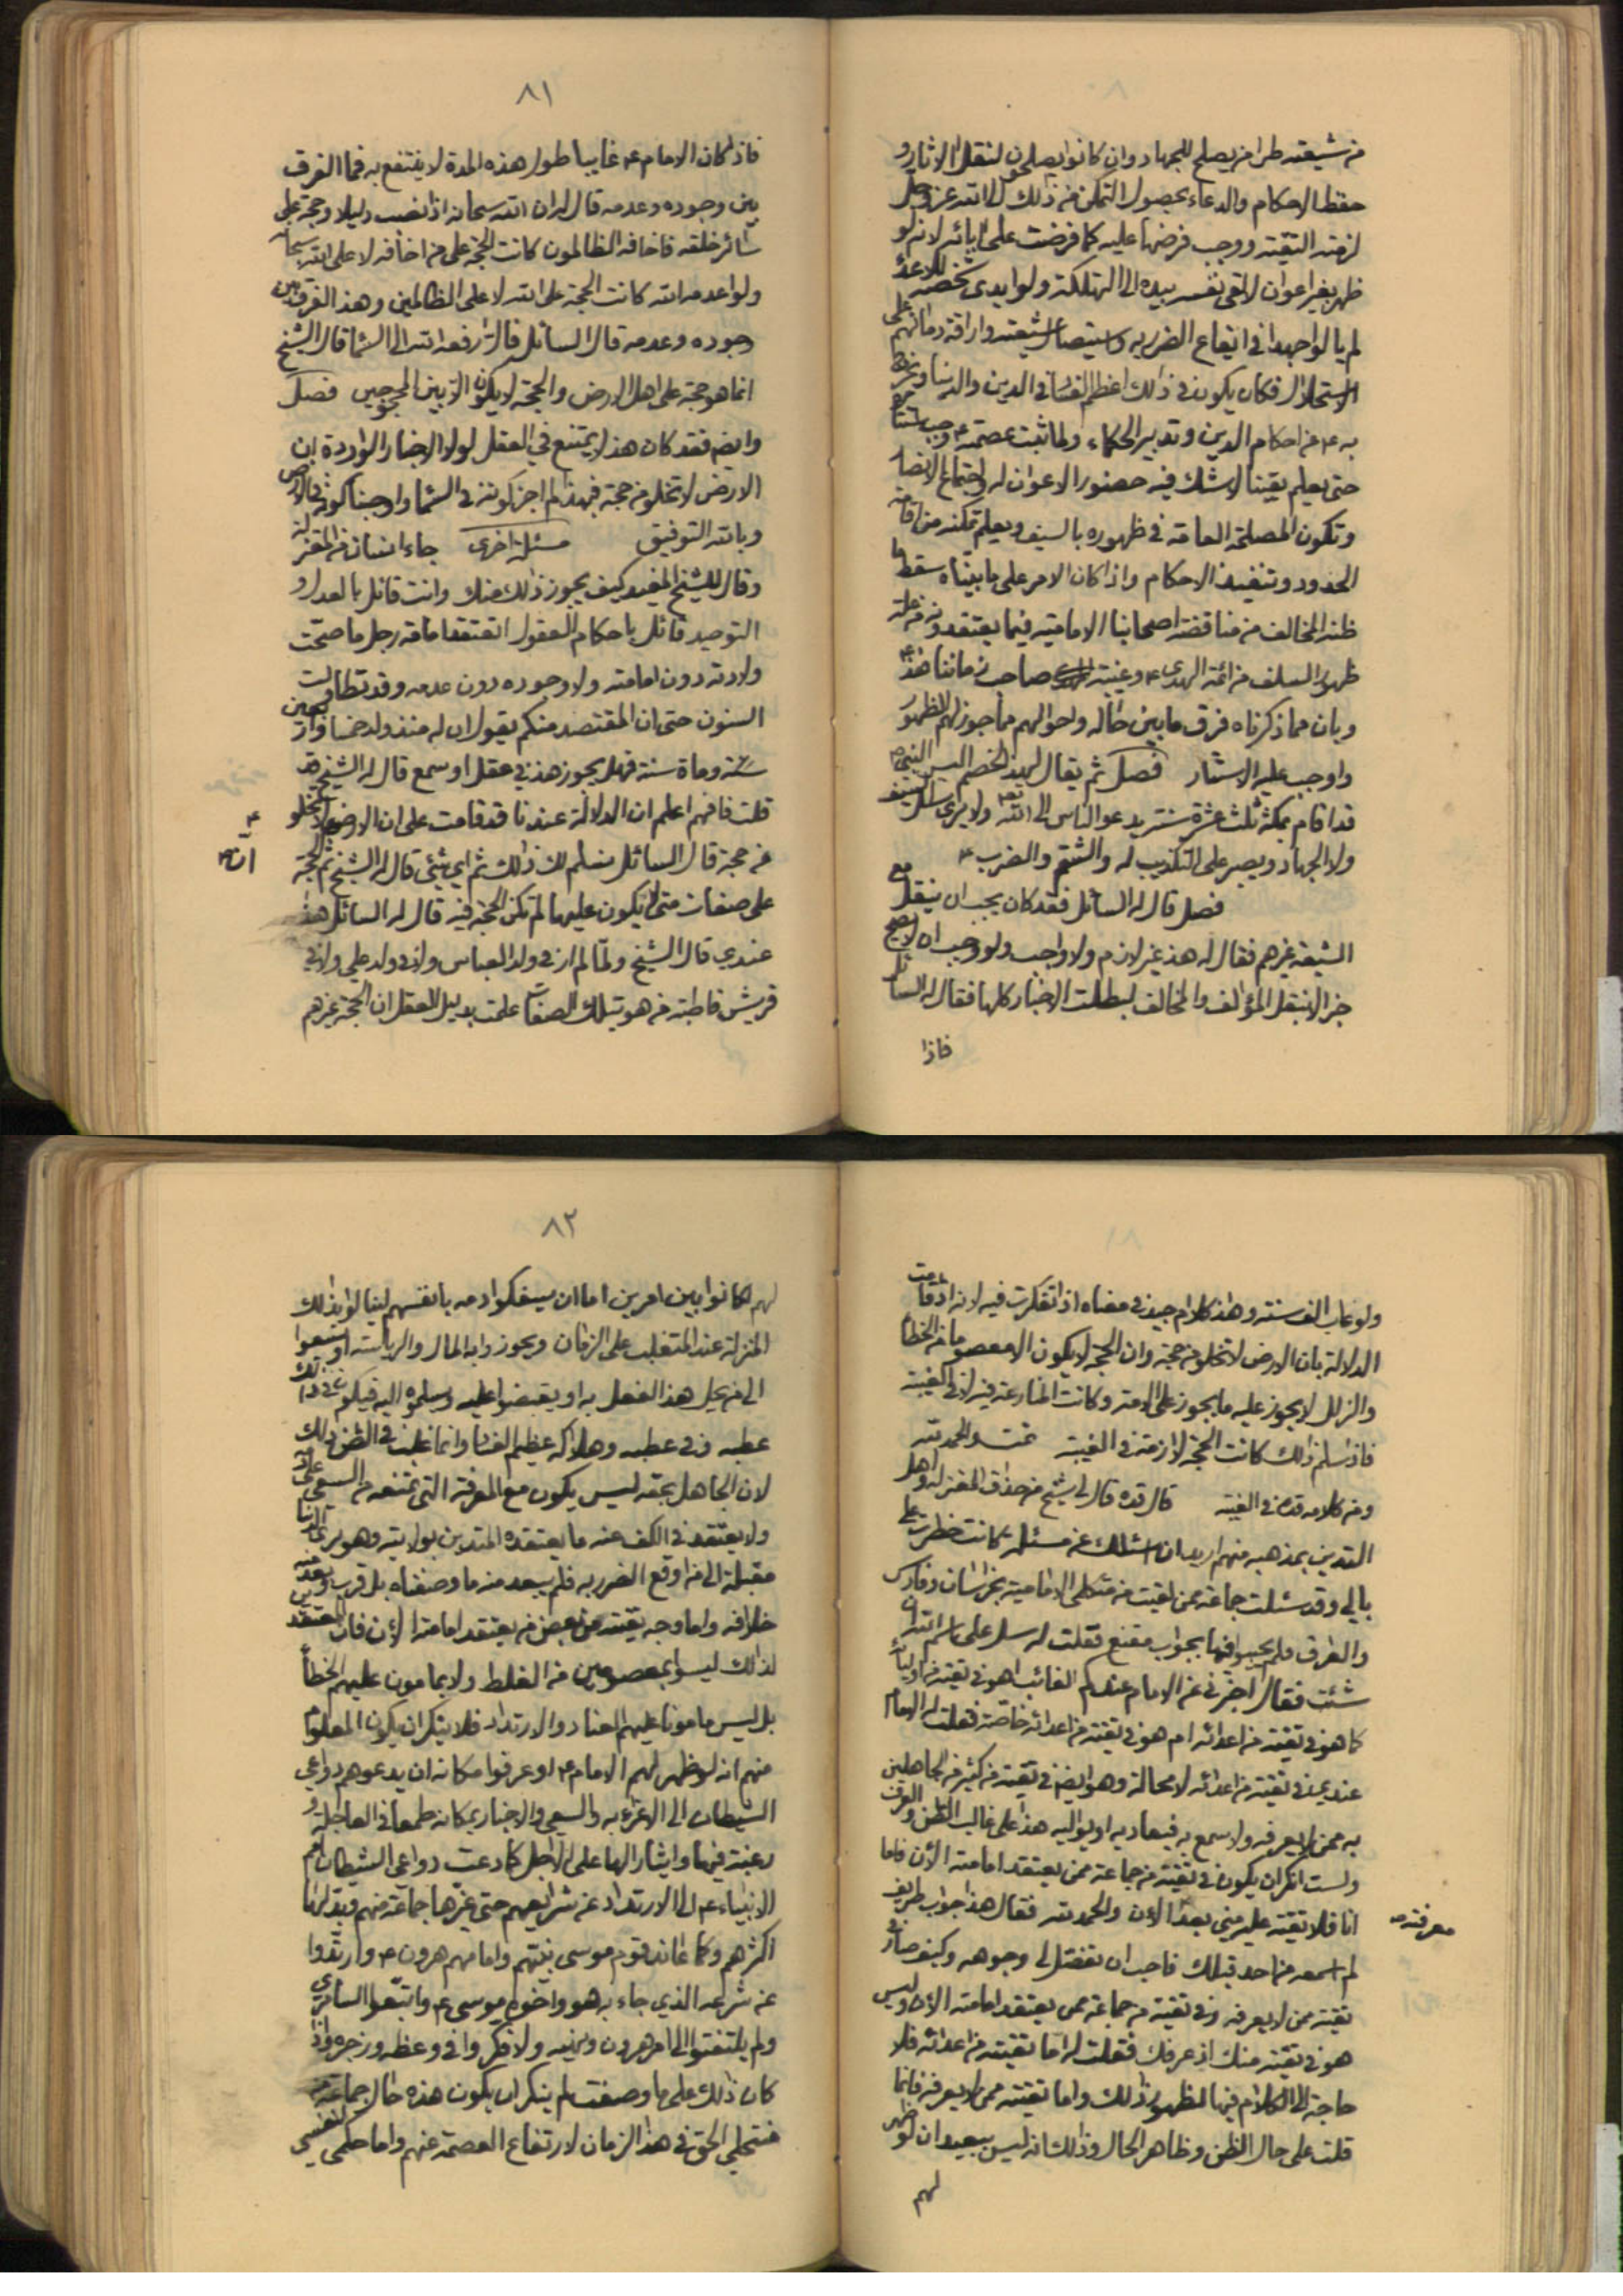 من شيعته طرا من يصلح للجهاد وان كانوا يصلحون لنقل الاثار و
حفظ الاحكام والدعاء بحصول التمكن من ذلك الى الله عز وجل
لزمته التقية ووجب فرضها عليه كما فرضت على ابائه لانه لو
ظهر بغير اعوان لالقى نفسه بيده الى التهلكة ولو ابدى شخصه للاعداء
لم يالوا جهدا في ايقاع الضرر به واستيصال شيعته واراقة دمائهم على
الاستحلال فكان يكون في ذلك اعظم الفساد في الدين والدنيا ويخرج
به ع من احكام الدين وتدبير الحكماء ولما ثبت عصمته ع وجب استتاره
حتى يعلم يقينا لا شك فيه حضور الاعوان له واجتماع الانصار
وتكون المصلحة العامة في ظهوره بالسيف ويعلم تمكنه من اقامة
الحدود وتنفيذ الاحكام واذا كان الامر على ما بيناه سقط ما
ظنه المخالف من مناقضة اصحابنا الامامية فيما يعتقدونه من علة
ظهور السلف من ائمة الهدى ع وغيبة صاحب زماننا هذا ع
وبان مما ذكرناه فرق ما بين حاله واحوالهم مما جوز لهم الظهور
واوجب عليه الاستتار فصل ثم يقال لهذا الخصم اليس النبي ص
قد اقام بمكة ثلث عشرة سنة يدعو الناس الى الله تعم ولا يرى سل السيف
ولا الجهاد ويصبر على التكذيب له والشتم والضرب
فصل قال له السائل فقد كان يجب ان ينقل مع
الشيعة غيرهم فقال له هذا غير لازم ولا واجب ولو وجب ان لا يصح
خبر لا ينقل المؤالف والمخالف لبطلت الاخبار كلها فقال له السائل
فاذا
٨١
فاذا كان الامام ع غايبا طول هذه المدة لا ينتفع به فما الفرق
بين وجوده وعدمه قال له ان الله سبحانه اذا نصب دليلا وحجة على
سائر خلقه فاخافه الظالمون كانت الحجة على من اخافه لا على الله سبحانه
ولو اعدمه الله كانت الحجة على الله لا على الظالمين وهذا الفرق بين
وجوده وعدمه قال السائل فالا رفعه الله الى السماء قال الشيخ
انما هو حجة على اهل الارض والحجة لا يكون الا بين المحجوجين فصل
وايضم فقد كان هذا لا يمتنع في العقل لولا الاخبار الواردة ان
الارض لا تخلو من حجة فلهذا لم اجز كونه في السماء واوجبنا كونه في الارض
وبالله التوفيق مسئلة اخرى جاء انسان من المعتزلة
وقال للشيخ المفيد كيف يجوز ذلك منك وانت قائل بالعدل و
التوحيد قائل باحكام العقول اتعتقد امامة رجل ما صحت
ولادته دون امامته ولا وجوده دون عدمه وقد تطاولت
السنون حتى ان المقتصد منكم يقول ان له منذ ولد خمسا واربعين
سنة وماة سنة فهل يجوز هذا في عقل او سمع قال له الشيخ قد
قلت فافهم اعلم ان الدلالة عندنا قد قامت على ان الارض لا تخلو
من حجة قال السائل مسلم لك ذلك ثم اي شئ قال له الشيخ ثم الحجة
على صفات متى لا يكون عليها لم تكن الحجة فيه قال له السائل هذا
عندي قال الشيخ ولما لم ار في ولد العباس ولا في ولد علي ولا في
قريش قاطبة من هو بتلك الصفات علمت بدليل العقل ان الحجة غيرهم
ولو غاب الف سنة وهذا كلام جيد في معناه اذا تفكرت فيه لانه اذا قامت
الدلالة بان الارض لا تخلو من حجة وان الحجة لا يكون الا معصوما من الخطأ
والزلل لا يجوز عليه ما يجوز على الامة وكانت المنازعة فيه لا في الغيبة
فاذا سلم ذلك كانت الحجة لازمة في الغيبة تمت والحمد لله
ومن كلامه قده في الغيبة قال قده قال لي شيخ من حذاق المعتزلة واهل
التدين بمذهبه منهم اريد ان اسئلك عن مسئلة كانت خطرت على
بالي وقد سئلت جماعة ممن لقيت من متكلمي الامامية بخراسان وفارس
والعراق فلم يجيبوا فيها بجواب مقنع فقلت له سل على اسم الله ان
شئت فقال اخبرني عن الامام عندكم الغائب اهو في تقية من اوليائه
كما هو في تقية من اعدائه ام هو في تقية من اعدائه خاصة فقلت له الامام
عندي في تقية من اعدائه لا محالة وهو ايضم في تقية من كثير من الجاهلين
به ممن لا يعرفه ولا سمع به فيعاديه او يواليه هذا على غالب الظن والعرف
ولست انكر ان يكون في تقية من جماعة ممن يعتقد امامته الآن فاما
انا فلا تقية عليه مني بعد الآن والحمد لله فقال هذا جواب طريف
معرفته
لم اسمعه من احد قبلك فاحب ان تفضل لي وجوهه وكيف صار في
تقية ممن لا يعرفه وفي تقية من جماعة ممن يعتقد امامته الآن وليس
هو في تقية منك اذ عرفك فقلت له اما تقيته من اعدائه فلا
حاجة الى الكلام فيها لظهور ذلك واما تقيته ممن لا يعرفه فانما
قلت على حال الظن وظاهر الحال وذلك انه ليس ببعيد ان لو ظهر
لهم
٨٢
لهم لكانوا بين امرين اما ان يسفكوا دمه بانفسهم لينالوا بذلك
المنزلة عند المتغلب على الزمان ويحوزوا به المال والرياسة او يسعوا
الى من يحل هذا الفعل به او يقبضوا عليه ويسلموه اليه فيكون في ذلك
عطبه وفي عطبه وهلاكه عظيم الفساد وانما غلب في الظن ذلك
لان الجاهل بحقه ليس يكون مع المعرفة التي تمنعه من السعي على
ولا يعتقد في الكف عنه ما يعتقده المتدين بولايته وهو يرى الدنيا
مقبلة الى من اوقع الضرر به فلم يبعد منه ما وصفناه بل قرب وبعد منه
خلافه واما وجه تقيته من بعض من يعتقد امامته الآن فان المعتقدين
لذلك ليسوا بمعصومين من الغلط ولا بمامون عليهم الخطأ
بل ليس مامونا عليهم العناد والارتداد فلا ينكر ان يكون المعلوم
منهم انه لو ظهر لهم الامام ع او عرفوا مكانه ان يدعوهم دواعي
الشيطان الى الاغراء به والسعي والاخبار بمكانه طمعا في العاجلة و
رغبة فيها وايثارا لها على الآجل كما دعت دواعي الشيطان امم
الانبياء ع الى الارتداد عن شرايعهم حتى غيرها جماعة منهم وبدلها
اكثرهم وكما عاند قوم موسى نبيهم وامامهم هرون ع وارتدوا
عن شرعه الذي جاء به هو واخوه موسى ع واتبعوا السامري
ولم يلتفتوا الى امر هرون ونهيه ولا فكروا في وعظه وزجره واذا
كان ذلك على ما وصفت لم ينكر ان يكون هذه حال جماعة من
منتحلي الحق في هذا الزمان لارتفاع العصمة عنهم واما حكمي لنفسي